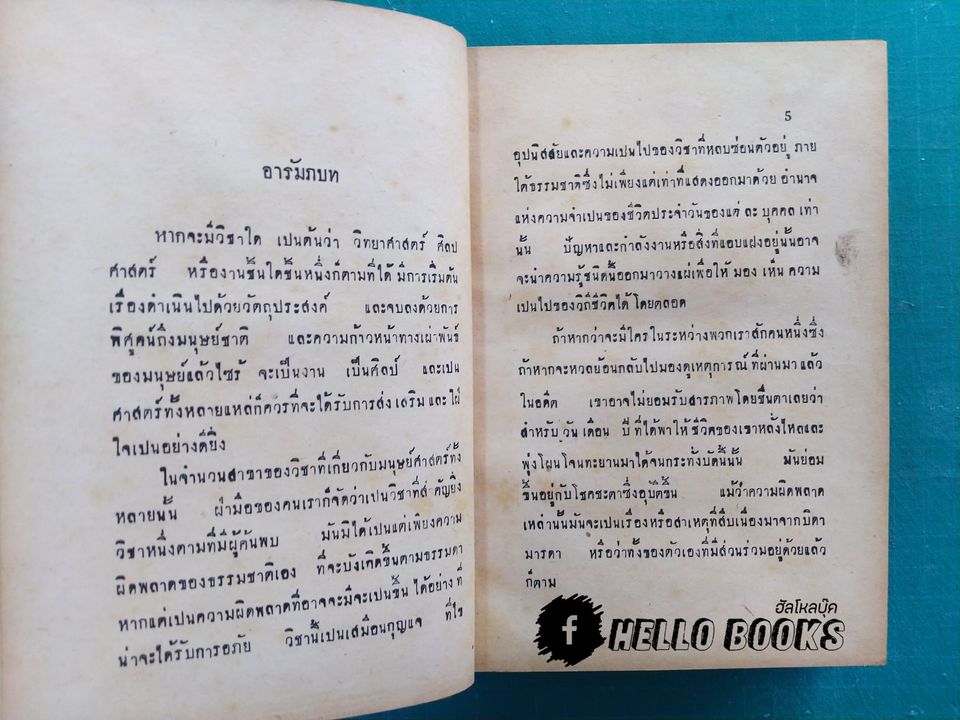 อารัมภบท
หากจะมีวิชาใด เปนต้นว่า วิทยาศาสตร์ ศิลป
ศาสตร์ หรืองานชิ้นใดชิ้นหนึ่งก็ตามที่ได้ มีการเริ่มต้น
เรื่องดำเนินไปด้วยวัตถุประสงค์ และจบลงด้วยการ
พิศูจน์ถึงมนุษย์ชาติ และความก้าวหน้าทางเผ่าพันธ์
ของมนุษย์แล้วไซร้ จะเป็นงาน เป็นศิลป์ และเปน
ศาสตร์ทั้งหลายแหล่ก็ควรที่จะได้รับการส่งเสริม และ ใฝ่
ใจเปนอย่างดียิ่ง
ในจำนวนสาขาของวิชาที่เกี่ยวกับมนุษย์ศาสตร์ทั้ง
หลายนั้น ฝ่ามือของคนเราก็จัดว่าเปนวิชาที่สำคัญยิ่ง
วิชาหนึ่งตามที่มีผู้ค้นพบ มันมิได้เปนแต่เพียงความ
ผิดพลาดของธรรมชาติเอง ที่จะบังเกิดขึ้นตามธรรมดา
หากแต่เปนความผิดพลาดที่อาจจะมีจะเปนขึ้น ได้อย่าง ที่
น่าจะได้รับการอภัย วิชานี้เปนเสมือนกุญแจ ที่ไข
5
อุปนิสสัยและความเปนไปของวิชาที่หลบซ่อนตัวอยู่ ภาย
ใต้ธรรมชาติซึ่งไม่เพียงแต่เท่าที่แสดงออกมาด้วย อำนาจ
แห่งความจำเปนของชีวิตประจำวันของแต่ ละ บุคคล เท่า
นั้น ปัญหาและกำลังงานหรือสิ่งที่แอบแฝงอยู่นั้นอาจ
จะนำความรู้ชนิดนี้ออกมาวางแผ่เพื่อให้ มอง เห็น ความ
เปนไปของวิถีชีวิตได้ โดยตลอด
ถ้าหากว่าจะมีใครในระหว่างพวกเราสักคนหนึ่งซึ่ง
ถ้าหากจะหวลย้อนกลับไปมองดูเหตุการณ์ ที่ผ่านมา แล้ว
ในอดีต เขาอาจไม่ยอมรับสารภาพโดยชื่นตาเลยว่า
สำหรับ วัน เดือน ปี ที่ได้พาให้ ชีวิตของเขาหลั่งไหลและ
พุ่งโผนโจนทะยานมาได้จนกระทั่งบัดนี้นั้น มันย่อม
ขึ้นอยู่กับโชคชะตาซึ่งอุบัตขึ้น แม้ว่าความผิดพลาด
เหล่านั้นมันจะเปนเรื่องหรือสาเหตุที่สืบเนื่องมาจากบิดา
มารดา หรือว่าทั้งของตัวเองที่มีส่วนร่วมอยู่ด้วยแล้ว
ก็ตาม
ฮัลโหลบุ๊ค
f HELLO BOOKS